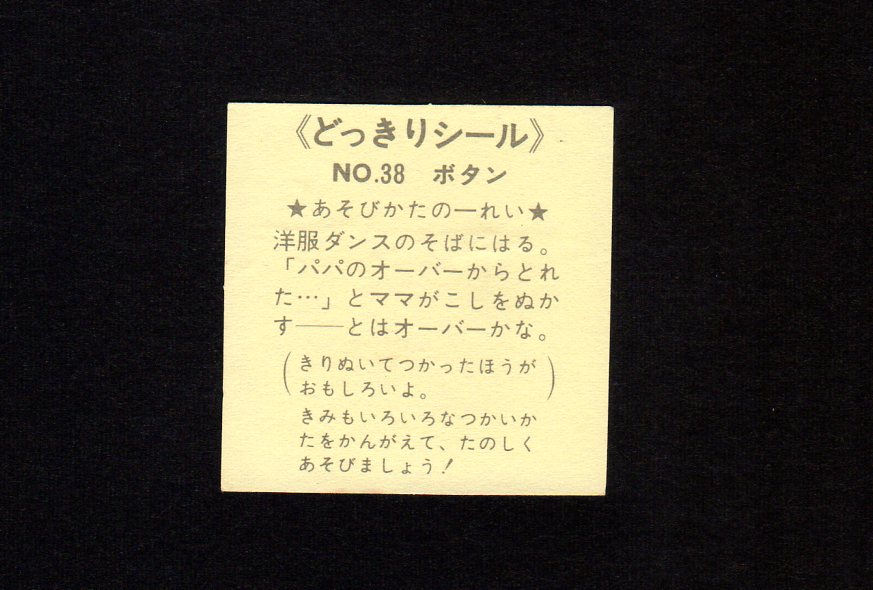 《どっきりシール》
NO.38 ボタン
★あそびかたの一れい★
洋服ダンスのそばにはる。
「パパのオーバーからとれ
た…」とママがこしをぬか
す──とはオーバーかな。
(きりぬいてつかったほうが
おもしろいよ。)
きみもいろいろなつかいか
たをかんがえて、たのしく
あそびましょう!